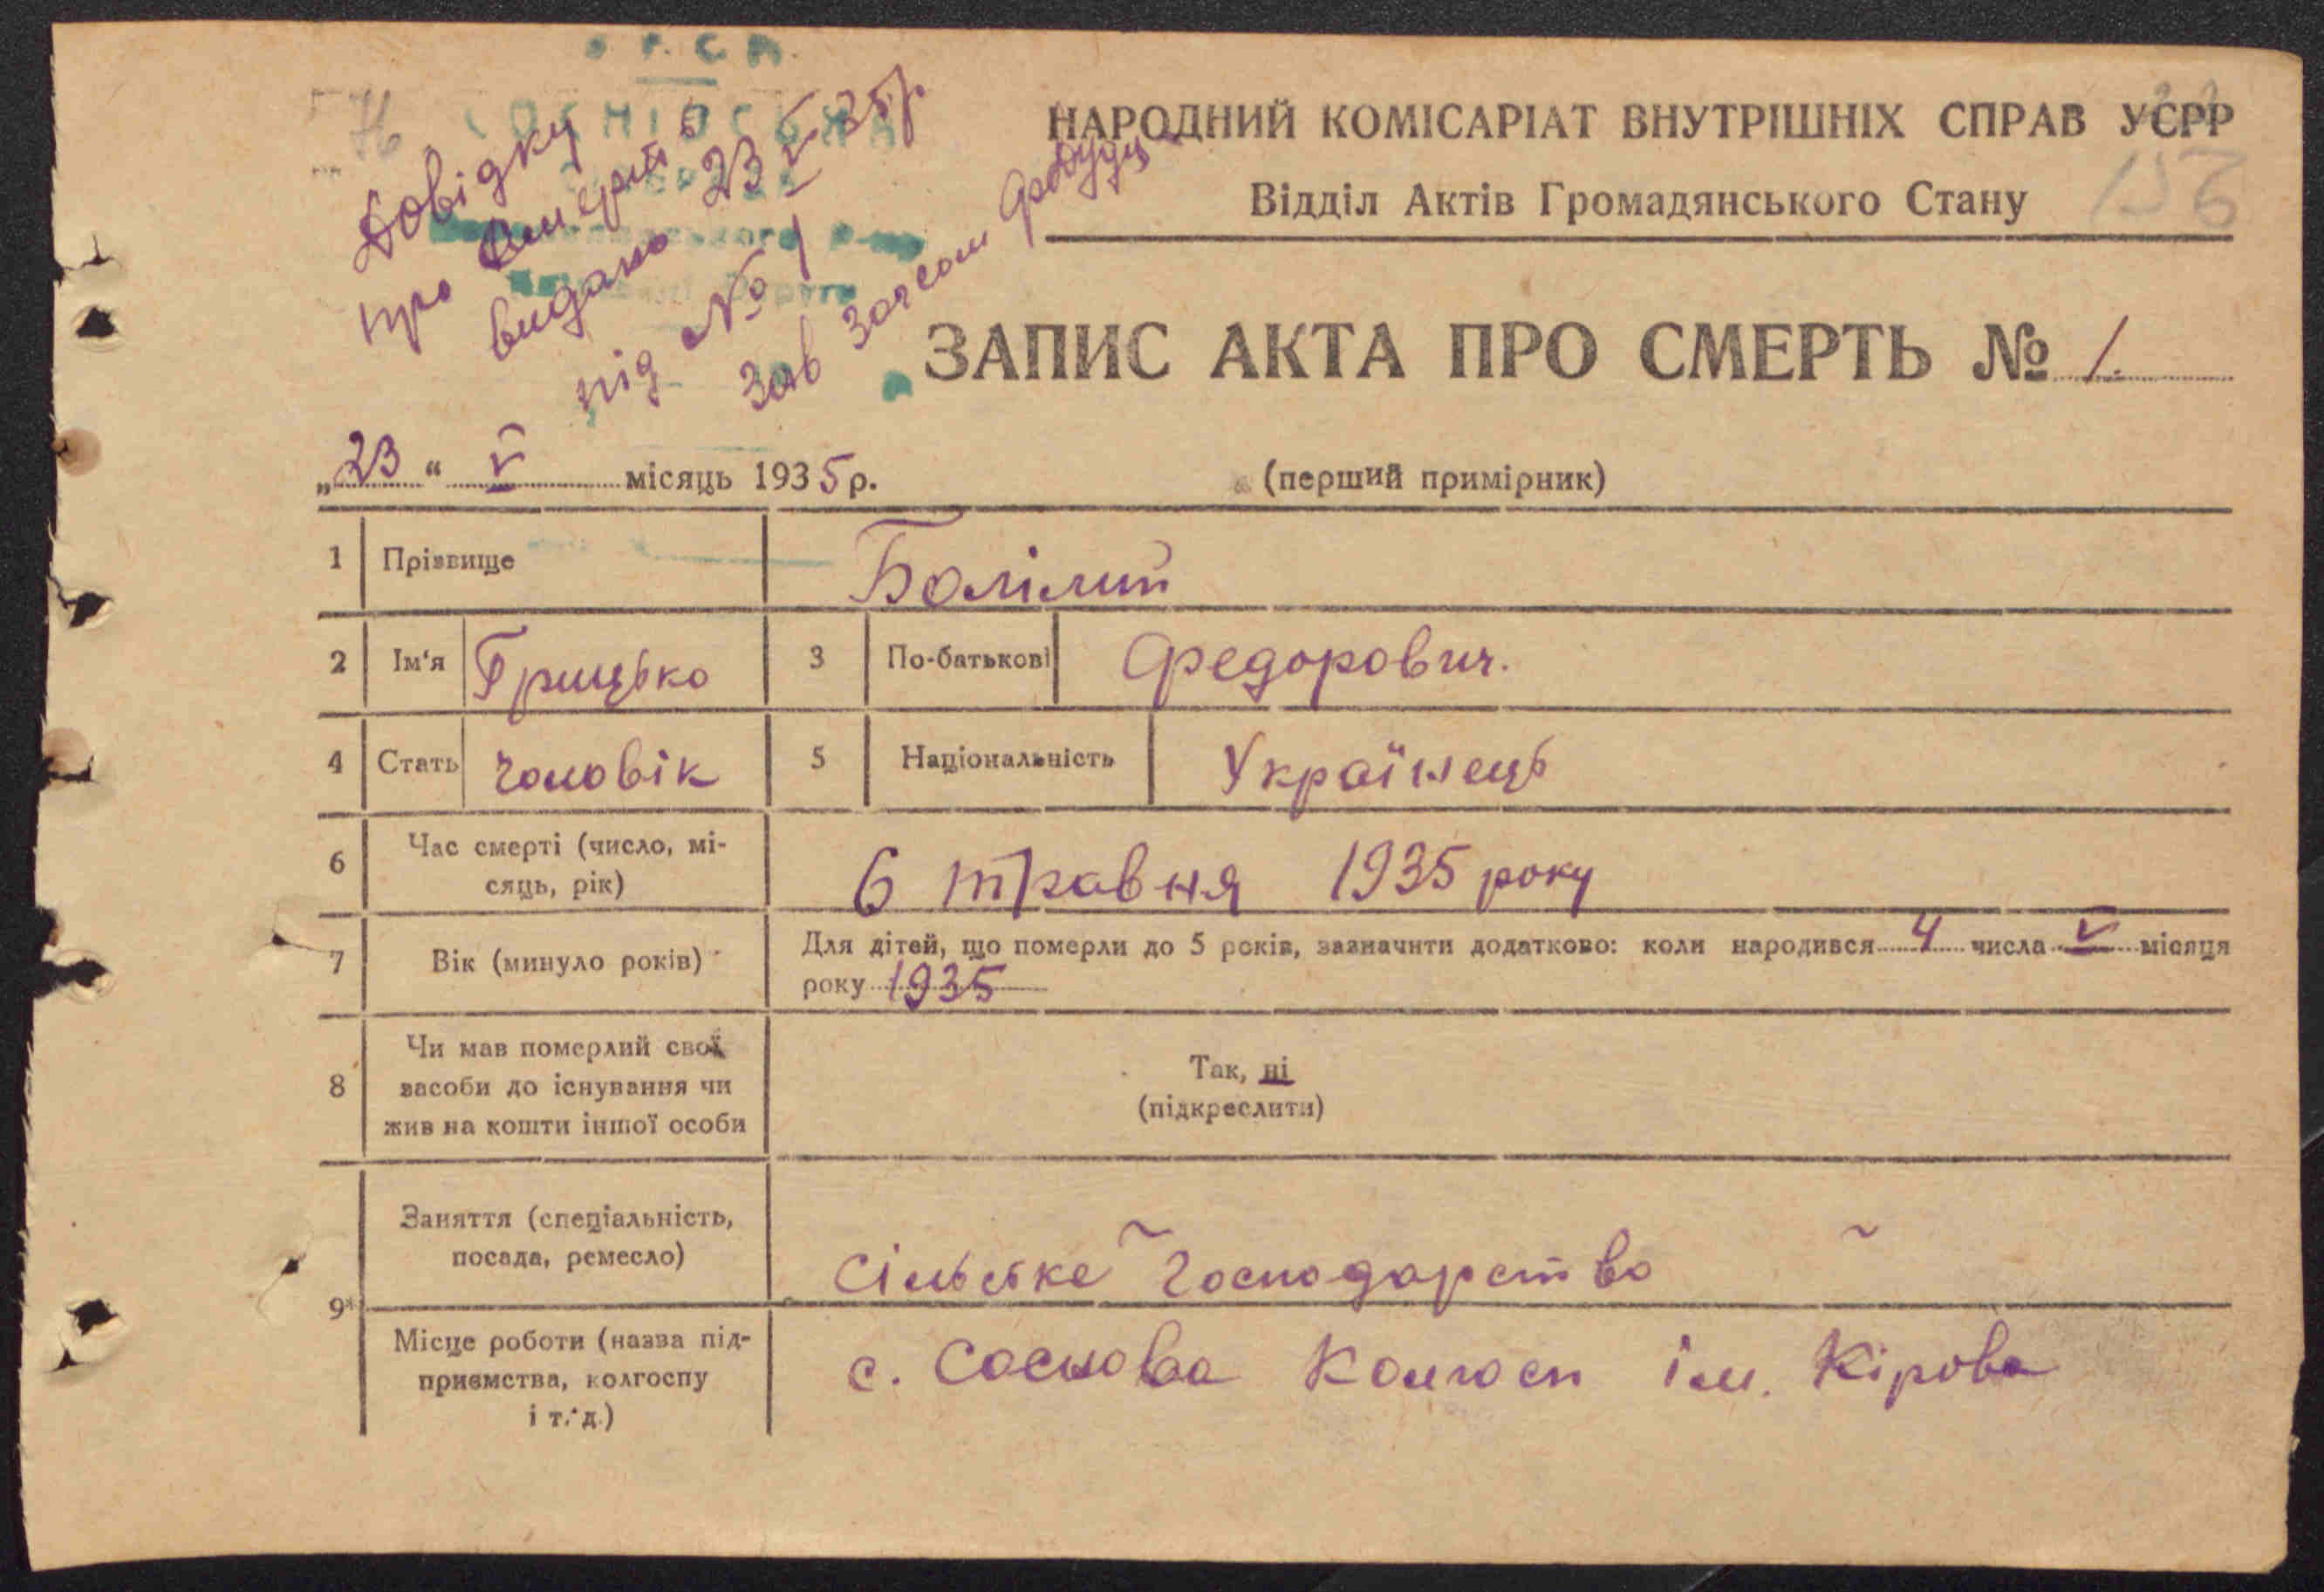 НАРОДНИЙ КОМІСАРІАТ ВНУТРІШНІХ СПРАВ УСРР
Відділ Актів Громадянського Стану
156
Довідку
про смерть
видано 23 V 35 р
під № 1
Зав Загсом
ЗАПИС АКТА ПРО СМЕРТЬ № 1.
„23“ V місяць 1935 р.
(перший примірник)
1 Прізвище Балілий
2 Ім'я Грицько 3 По-батькові Федорович.
4 Стать чоловік 5 Національність Українець
6 Час смерті (число, мі-
сяць, рік) 6 травня 1935 року
7 Вік (минуло років) Для дітей, що померли до 5 років, зазначити додатково: коли народився 4 числа V місяця
року 1935
8 Чи мав померлий свої
засоби до існування чи
жив на кошти іншої особи
Так, ні
(підкреслити)
9* Заняття (спеціальність,
посада, ремесло) сільське господарство
Місце роботи (назва під-
приємства, колгоспу
і т. д.) с. Соснова Колгосп ім. Кірова